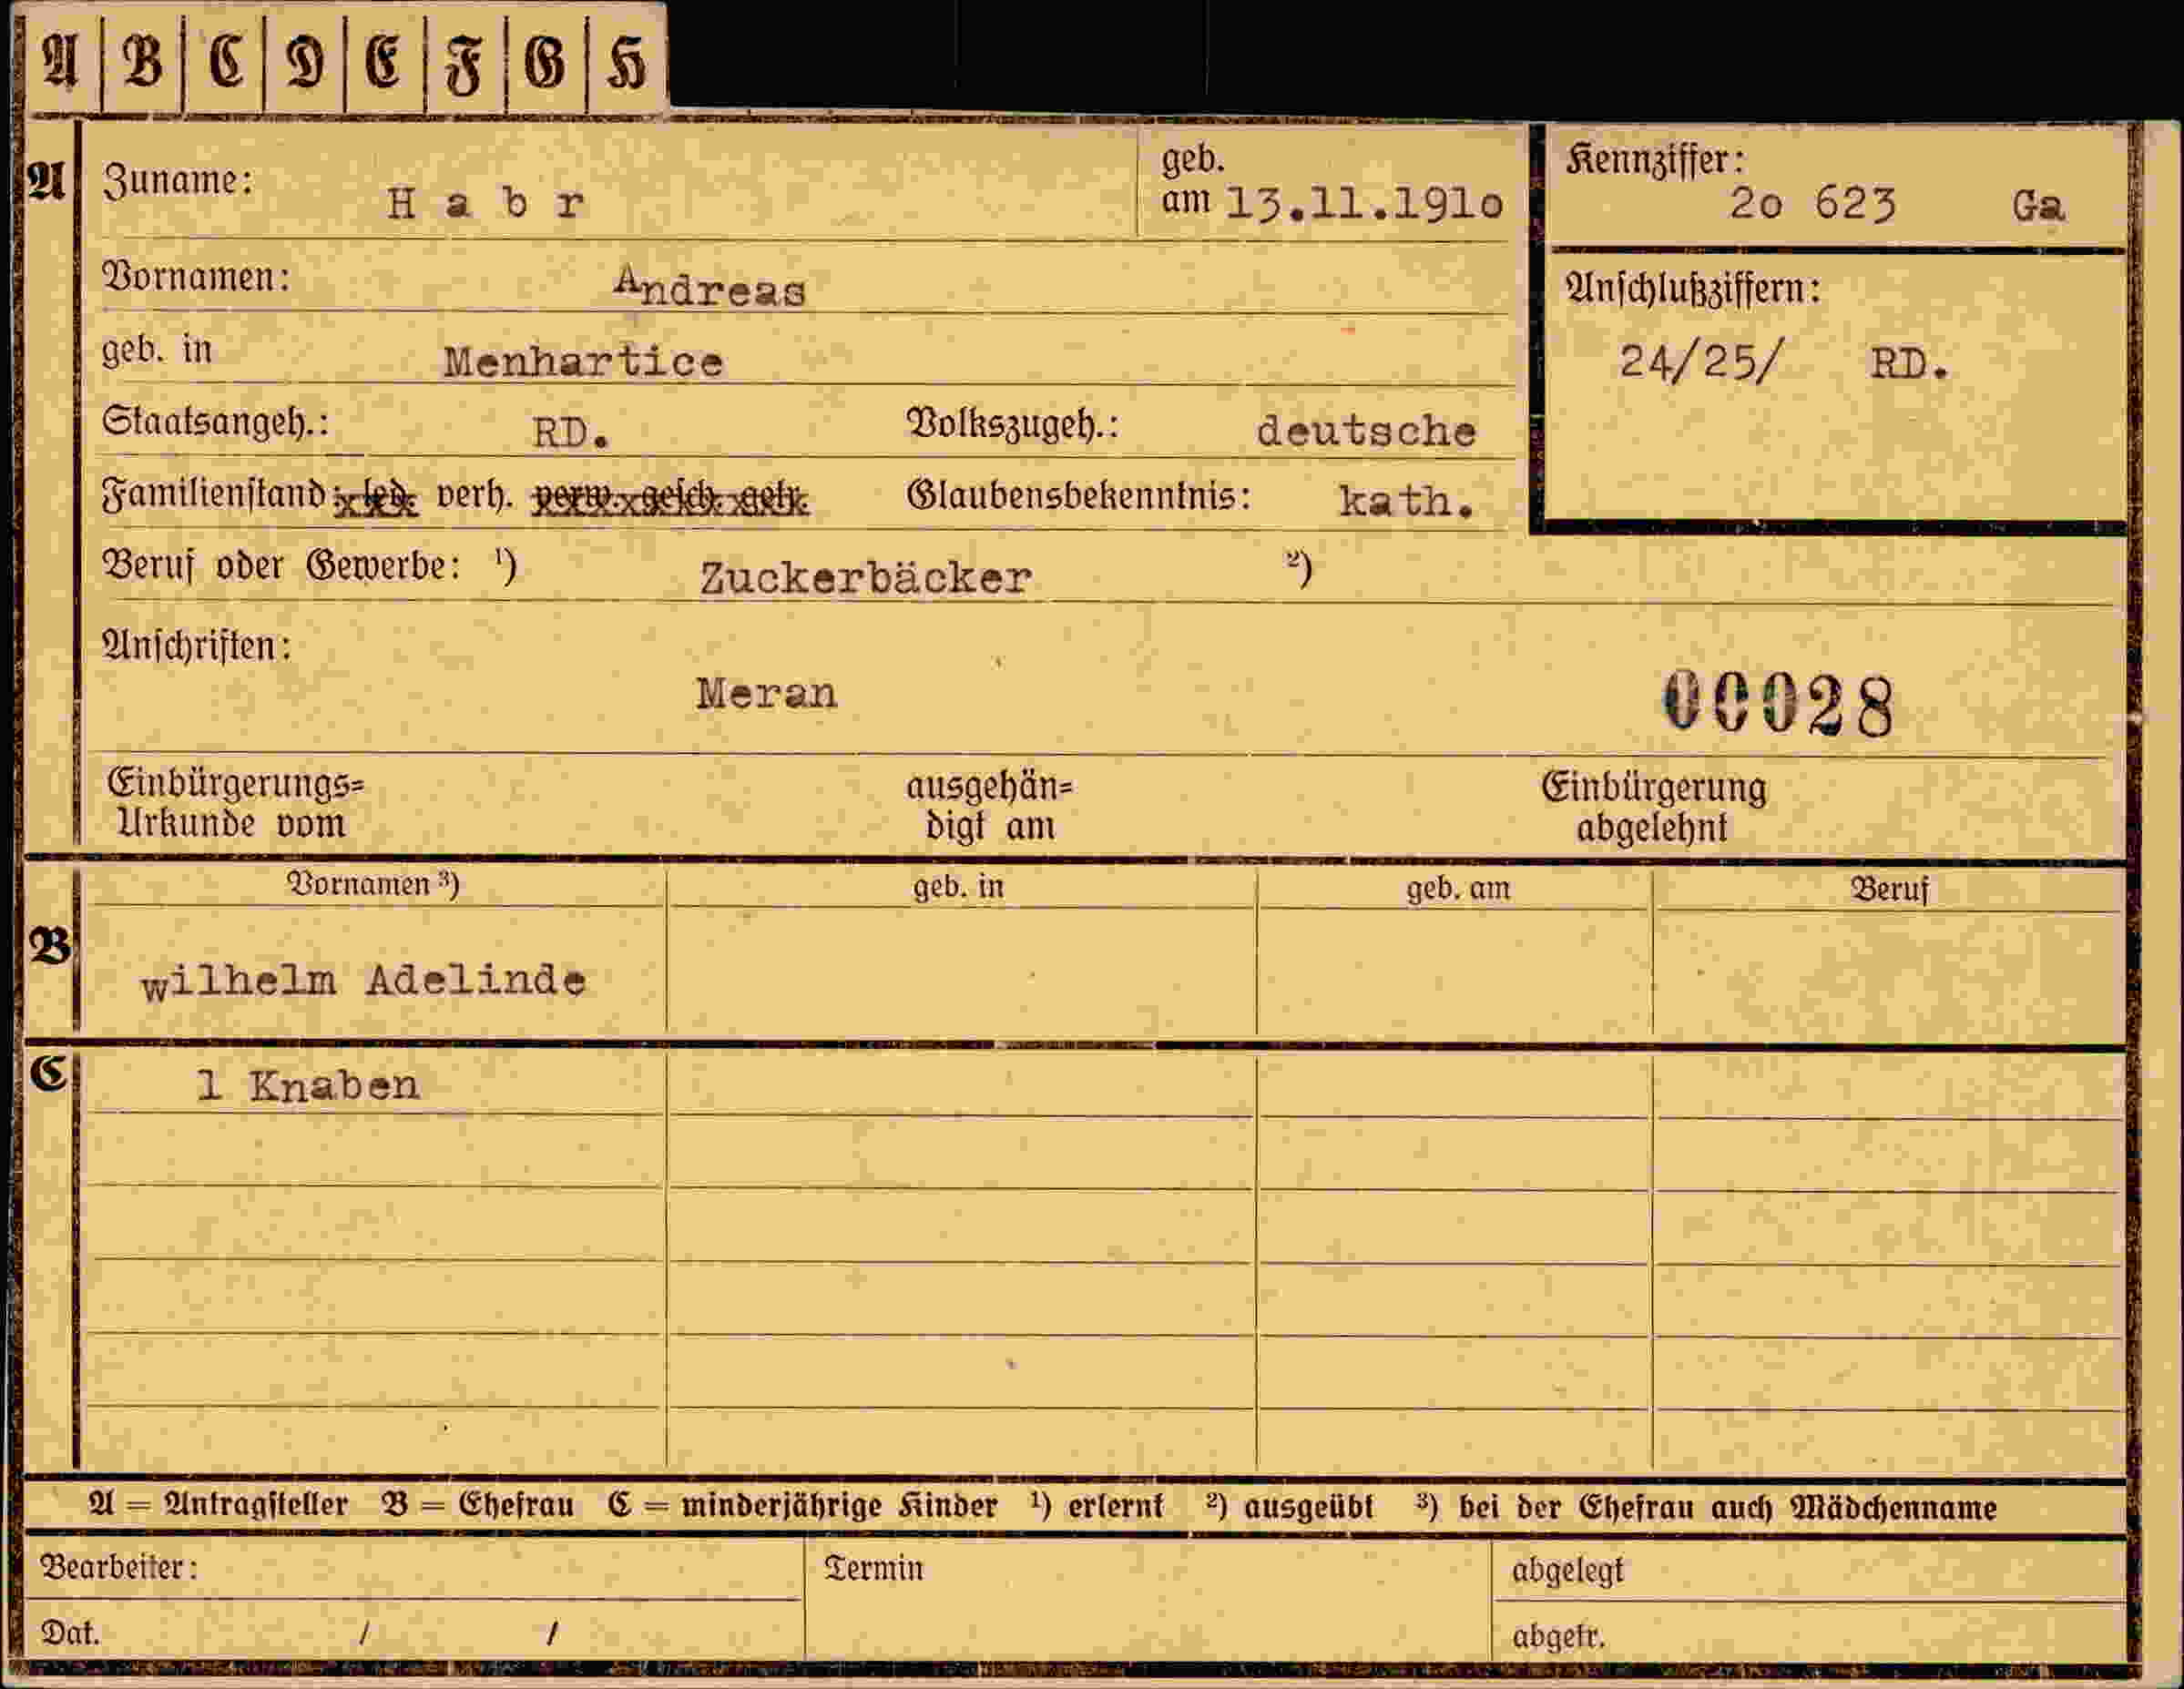 A B C D E F G H
A Zuname: H a b r geb. am 13.11.191o Kennziffer: 2o 623 Ga
Vornamen: Andreas Anschlußziffern:
geb. in Menhartice 24/25/ RD.
Staatsangeh.: RD. Volkszugeh.: deutsche
Familienstand: led. verh. verw. gesch. getr. Glaubensbekenntnis: kath.
Beruf oder Gewerbe: ¹) Zuckerbäcker ²)
Anschriften:
Meran 00028
Einbürgerungs= ausgehän= Einbürgerung
Urkunde vom digt am abgelehnt
Vornamen ³) geb. in geb. am Beruf
B wilhelm Adelinde
C 1 Knaben
A = Antragsteller B = Ehefrau C = minderjährige Kinder ¹) erlernt ²) ausgeübt ³) bei der Ehefrau auch Mädchenname
Bearbeiter: Termin abgelegt
Dat. / / abgetr.